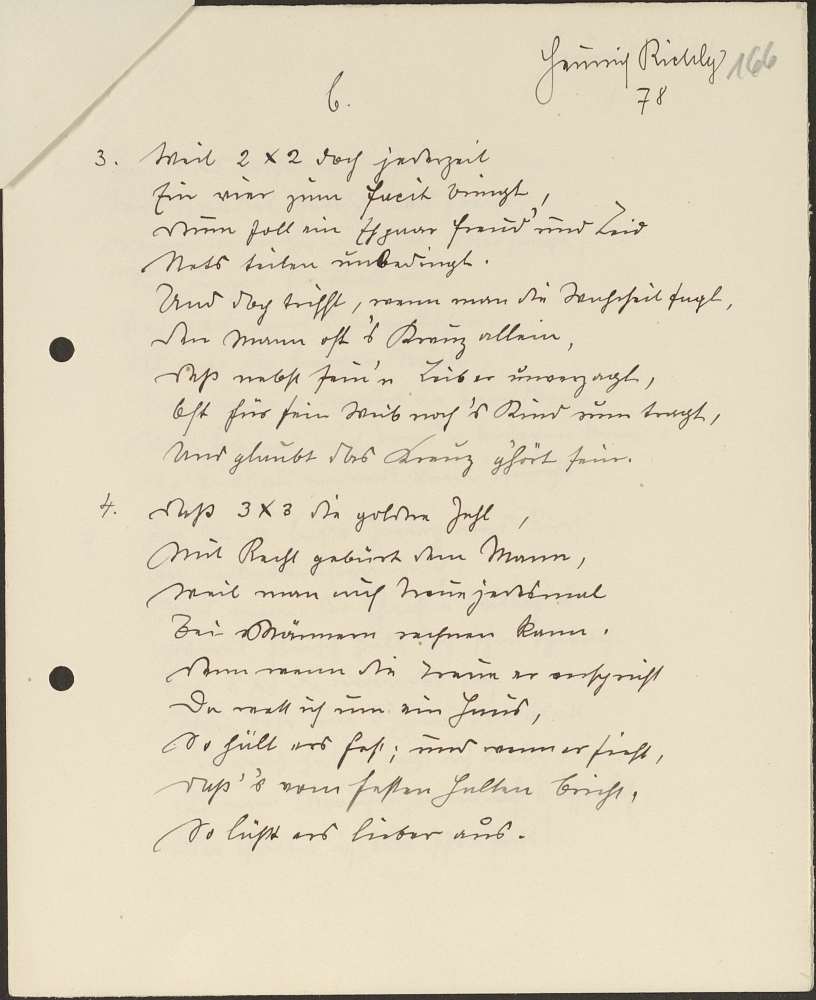 Heinrich Richly 166
78
6.
3. Weil 2 x 2 doch jederzeit
Ein vier zum facit bringt,
Nun soll ein Ehpaar Freud' und Leid
Stets teilen unbedingt.
Und doch trifft, wenn man die Wahrheit sagt,
Den Mann oft 's Kreuz allein,
Daß nebst sein'n Leib er unverzagt,
Oft für sein Weib noch 's Kind rum tragt,
Und glaubt das Kreuz g'hört sein.
4. Daß 3 x 3 die goldne Zahl,
Mit Recht gebürt dem Mann,
Weil man auf Treue jedesmal
Bei Männern rechnen kann.
Denn wenn die Treue er verspricht
Da wett ich um ein Haus,
So hält ers fest; und wenn er sieht,
Daß 's vom festen Halten bricht,
So läßt ers lieber aus.